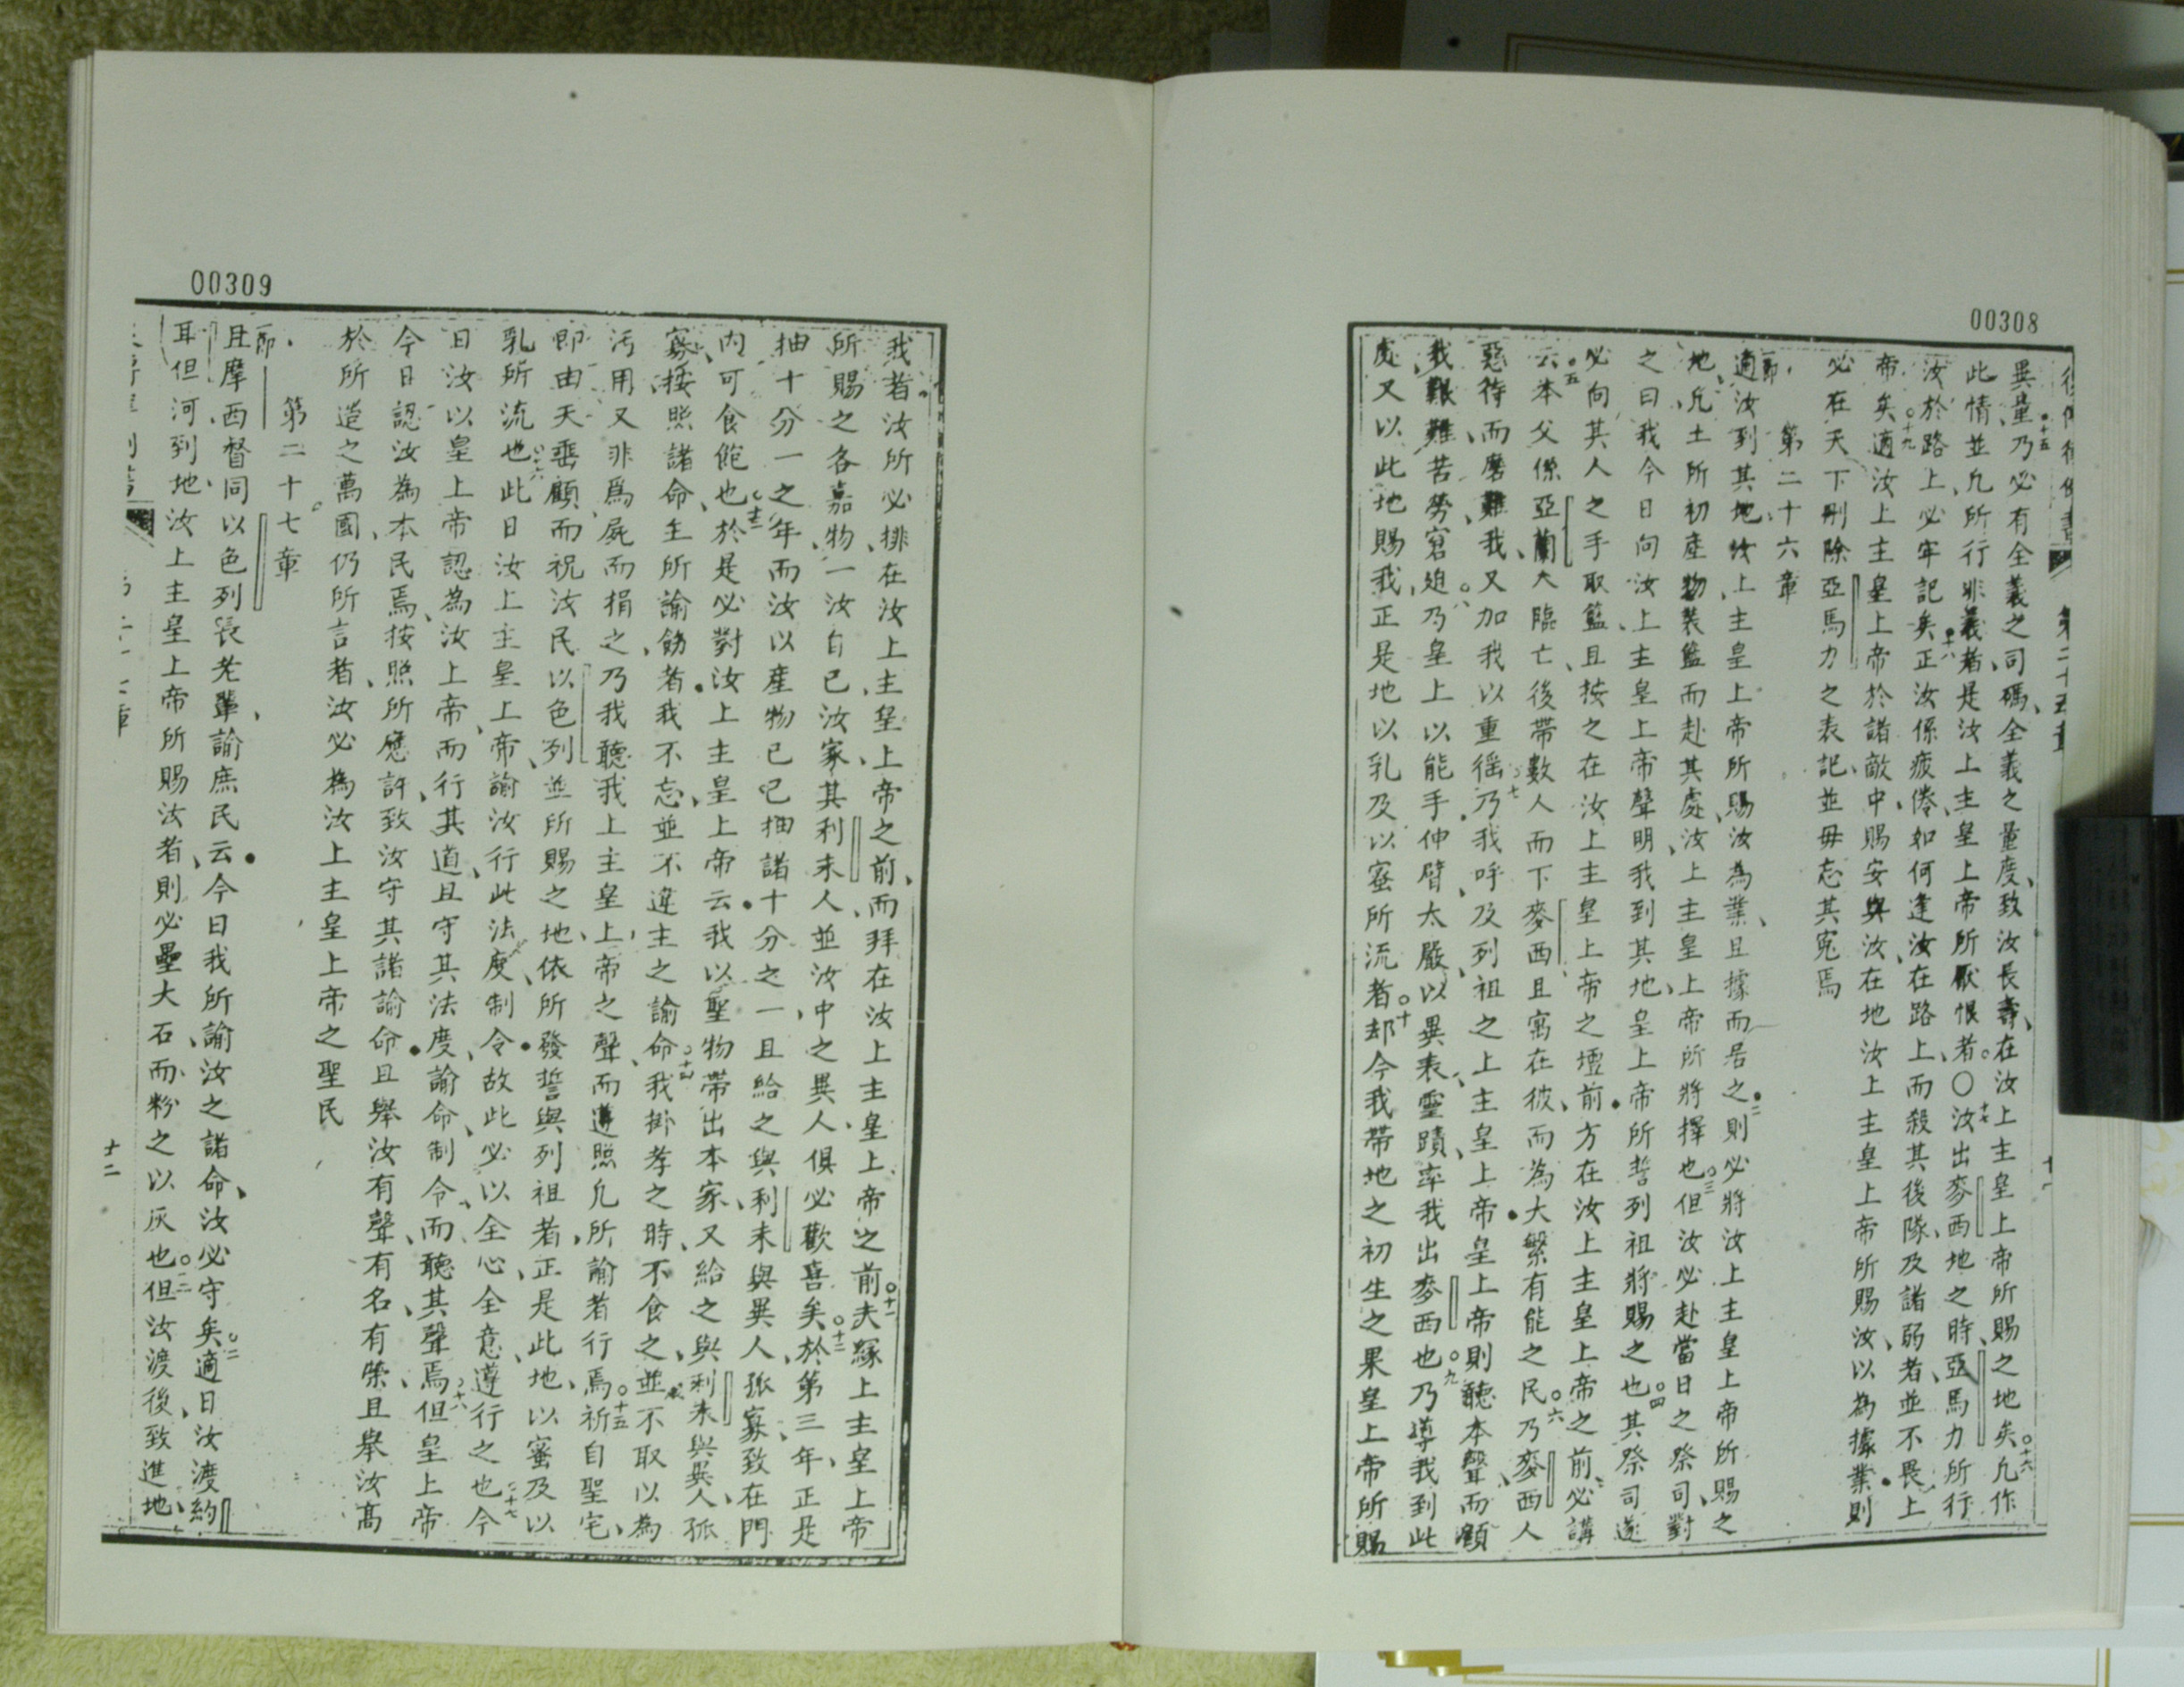 00308
第二十五章
異量乃必有全義之司碼、全義之量度、致汝長壽、在汝上主皇上帝所賜之地矣○十六凡作
此情並凡所行非義者、是汝上主皇上帝所厭恨者、○十七汝出麥西地之時、亞馬力所行
汝於路上、必牢記矣●十八正汝係疲倦、如何逢汝在路上、而殺其後隊及諸弱者、並不畏上
帝矣○十九適汝上主皇上帝於諸敵中、賜安與汝、在地汝上主皇上帝所賜汝、以為據業●則
必在天下刪除亞馬力之表記、並毋忘其寃焉
第二十六章
一節適汝到其地、汝上主皇上帝所賜汝為業、且據而居之●二則必將汝上主皇上帝所賜之
地、凡土所初產物、裝籃而赴其處、汝上主皇上帝所將擇也○三但汝必赴當日之祭司、對
之曰我今日向汝上主皇上帝聲明、我到其地、皇上帝所誓列祖將賜之也○四其祭司遂
必向其人之手取籃、且按之在汝上主皇上帝之壇前●五方在汝上主皇上帝之前、必講
云、本父係亞蘭人臨亡、後帶數人而下麥西、且寓在彼、而為大繁有能之民○六乃麥西人
惡待而磨難我、又加我以重徭○七乃我呼及列祖之上主皇上帝●皇上帝則聽本聲、而顧
我艱難、苦勞、窘迫○八乃皇上以能手伸臂、太嚴、以異表、靈蹟、率我出麥西也○九乃導我到此
處、又以此地賜我、正是地以乳及以蜜所流者○十却今我帶地之初生之果、皇上帝所賜
00309
我者、汝所必排在汝上主皇上帝之前、而拜在汝上主皇上帝之前○十一夫緣上主皇上帝
所賜之各嘉物、汝自己、汝家、其利未人、並汝中之異人、俱必歡喜矣○十二於第三年、正是
抽十分一之年、而汝以產物已已抽諸十分之一、且給之與利未與異人、孤寡、致在門
內可食飽也○十三於是必對汝上主皇上帝云、我以聖物帶出本家、又給之與利未與異人孤
寡、接照諸命、主所諭飭者●我不忘、並不違主之諭命○十四我掛孝之時、不食之、並不取以為
汚用、又非爲屍而捐之、乃我聽我上主皇上帝之聲、而遵照凡所諭者行焉○十五祈自聖宅、
即由天垂顧、而祝汝民以色列、並所賜之地、依所發誓與列祖者、正是此地、以蜜及以
乳所流也○十六此日汝上主皇上帝諭汝行此法度、制令●故此必以全心、全意、遵行之也○十七今
日汝以皇上帝認為汝上帝、而行其道、且守其法度、諭命、制令、而聽其聲焉○十八但皇上帝
今日認汝為本民焉、按照所應許、致汝守其諸諭命●且舉汝有聲、有名、有榮、且舉汝高
於所造之萬國、仍所言者、汝必為汝上主皇上帝之聖民
第二十七章
一節且摩西督同以色列長老輩、諭庶民云●今日我所諭汝之諸命、汝必守矣○二適日汝渡約
耳但河、到地、汝上主皇上帝所賜汝者、則必壘大石、而粉之以灰也○三但汝渡後、致進地、
十二